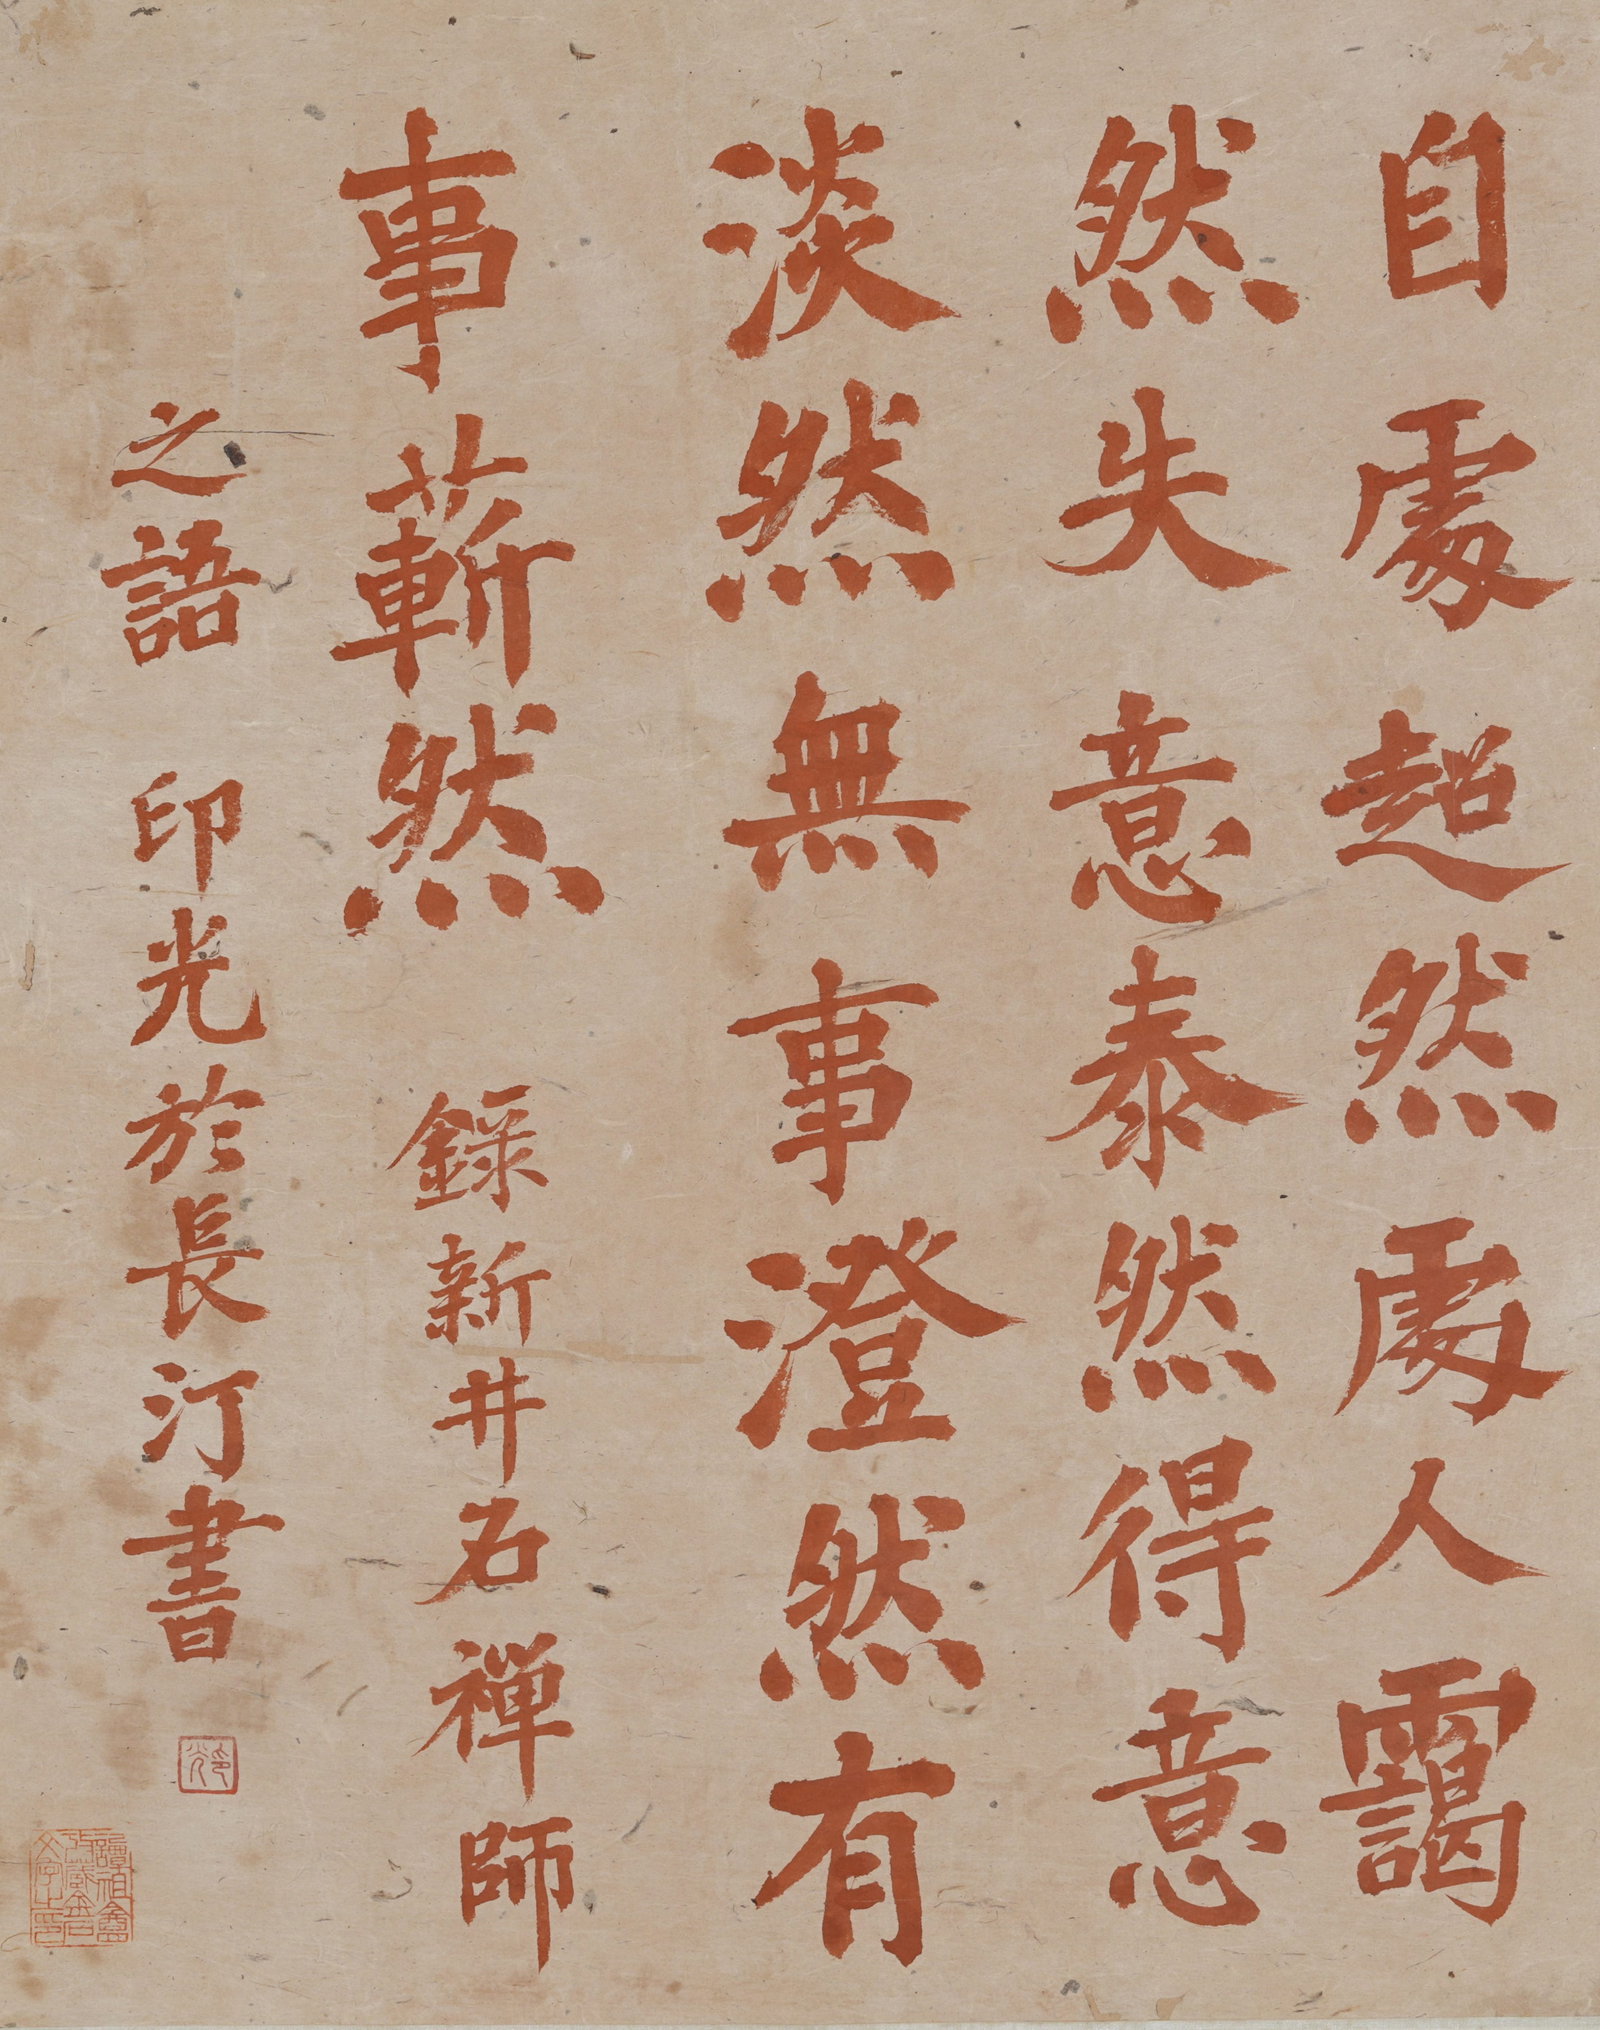 自處超然處人靄
然失意泰然得意
淡然無事澄然有
事蔪然 錄新井石禅師
之語 印光於長汀書
印光